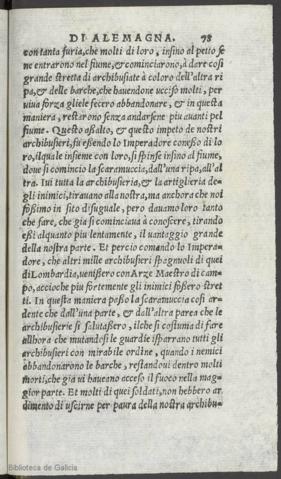 DI ALEMAGNA. 78
con tanta furia, che molti di loro, insino al petto se
ne entrarono nel fiume, & cominciarono, à dare cosi
grande stretta di archibusiate à coloro dell'altra ri
pa, & delle barche, che hauendone uccisi molti, per
uiua forza gliele fecero abbandonare, & in questa
maniera, restarono senza andarsene piu auanti pel
fiume. Questo assalto, & questo impeto de nostri
archibusieri, fu essendo lo Imperadore con esso di lo
ro, il quale insieme con loro, si spinse insino al fiume,
doue si comincio la scaramuccia, dall'una ripa, all'al
tra. Iui tutta la archibusieria, & la artiglieria de-
gli inimici, tirauano alla nostra, ma anchora che noi
fossimo in sito disuguale, pero dauamo loro tanto
che fare, che gia si cominciaua à conoscere, tirando
essi alquanto piu lentamente, il uantaggio grande
della nostra parte. Et percio comando lo Impera-
dore, che altri mille archibusieri spagnuoli di quei
di Lombardia, uenissero con Arze Maestro di cam-
po, accioche piu fortemente gli inimici fossero stret
ti. In questa maniera passo la scaramuccia cosi ar-
dente che dall'una parte, & dall'altra parea che le
archibusierie si salutassero, ilche si costuma di fare
allhora che mutandosi le guardie isparrano tutti gli
archibusieri con mirabile ordine, quando i nemici
abbandonarono le barche, restandoui dentro molti
morti, che gia ui haueano acceso il fuoco nella mag-
gior parte. Et molti di quei soldati, non hebbero ar
dimento di uscirne per paura della nostra archibu-
Biblioteca de Galicia